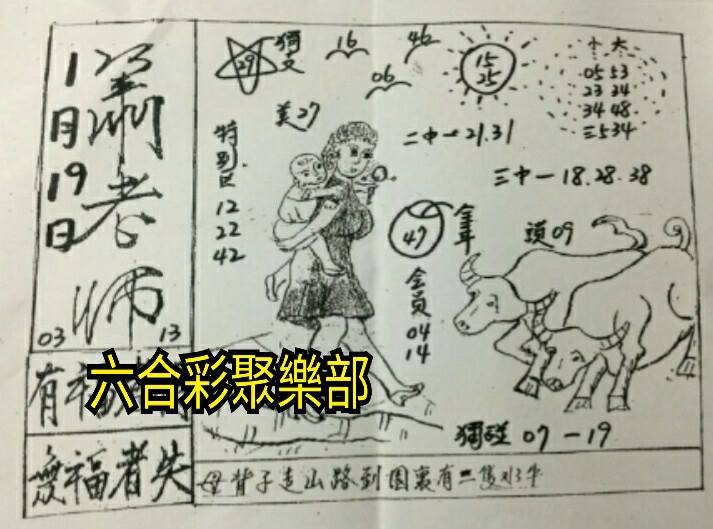 1月19日
蕭老师
03
13
有福
無福者失
六合彩聚樂部
29
獨支
16
46
06
15
25
小 大
05 53
23 34
34 48
三534
美27
特别区
12
22
42
二中一21.31
三中一18.28.38
47
会员
04
14
頭09
獨碰 07-19
母背子走山路到園裏有二隻水牛